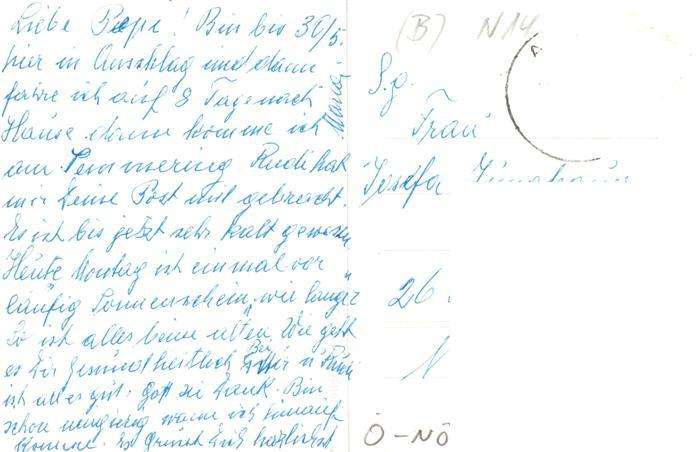 Liebe Pepi! Bin bis 30/5.
hier in Aussklag und dann
fahre ich auf 8 Tage nach
Hause dann komme ich
am Semmering Rudi hat
mir Deine Post mit gebracht.
Es ist bis jetzt sehr kalt gewesen
Heute Montag ist einmal vor
läufig Sonnenschein, wie lange?
So ist alles beim alten. Wie geht
es Dir gesundheitlich Bei Mir u Rudi
ist alles gut. Gott sei Dank. Bin
schon neugierig wann ich hinauf
komme. Es grüsst Dich herzlichst
Mandi
(B) N14
S.g.
Frau
Josefa
26.
N
Ö-NÖ